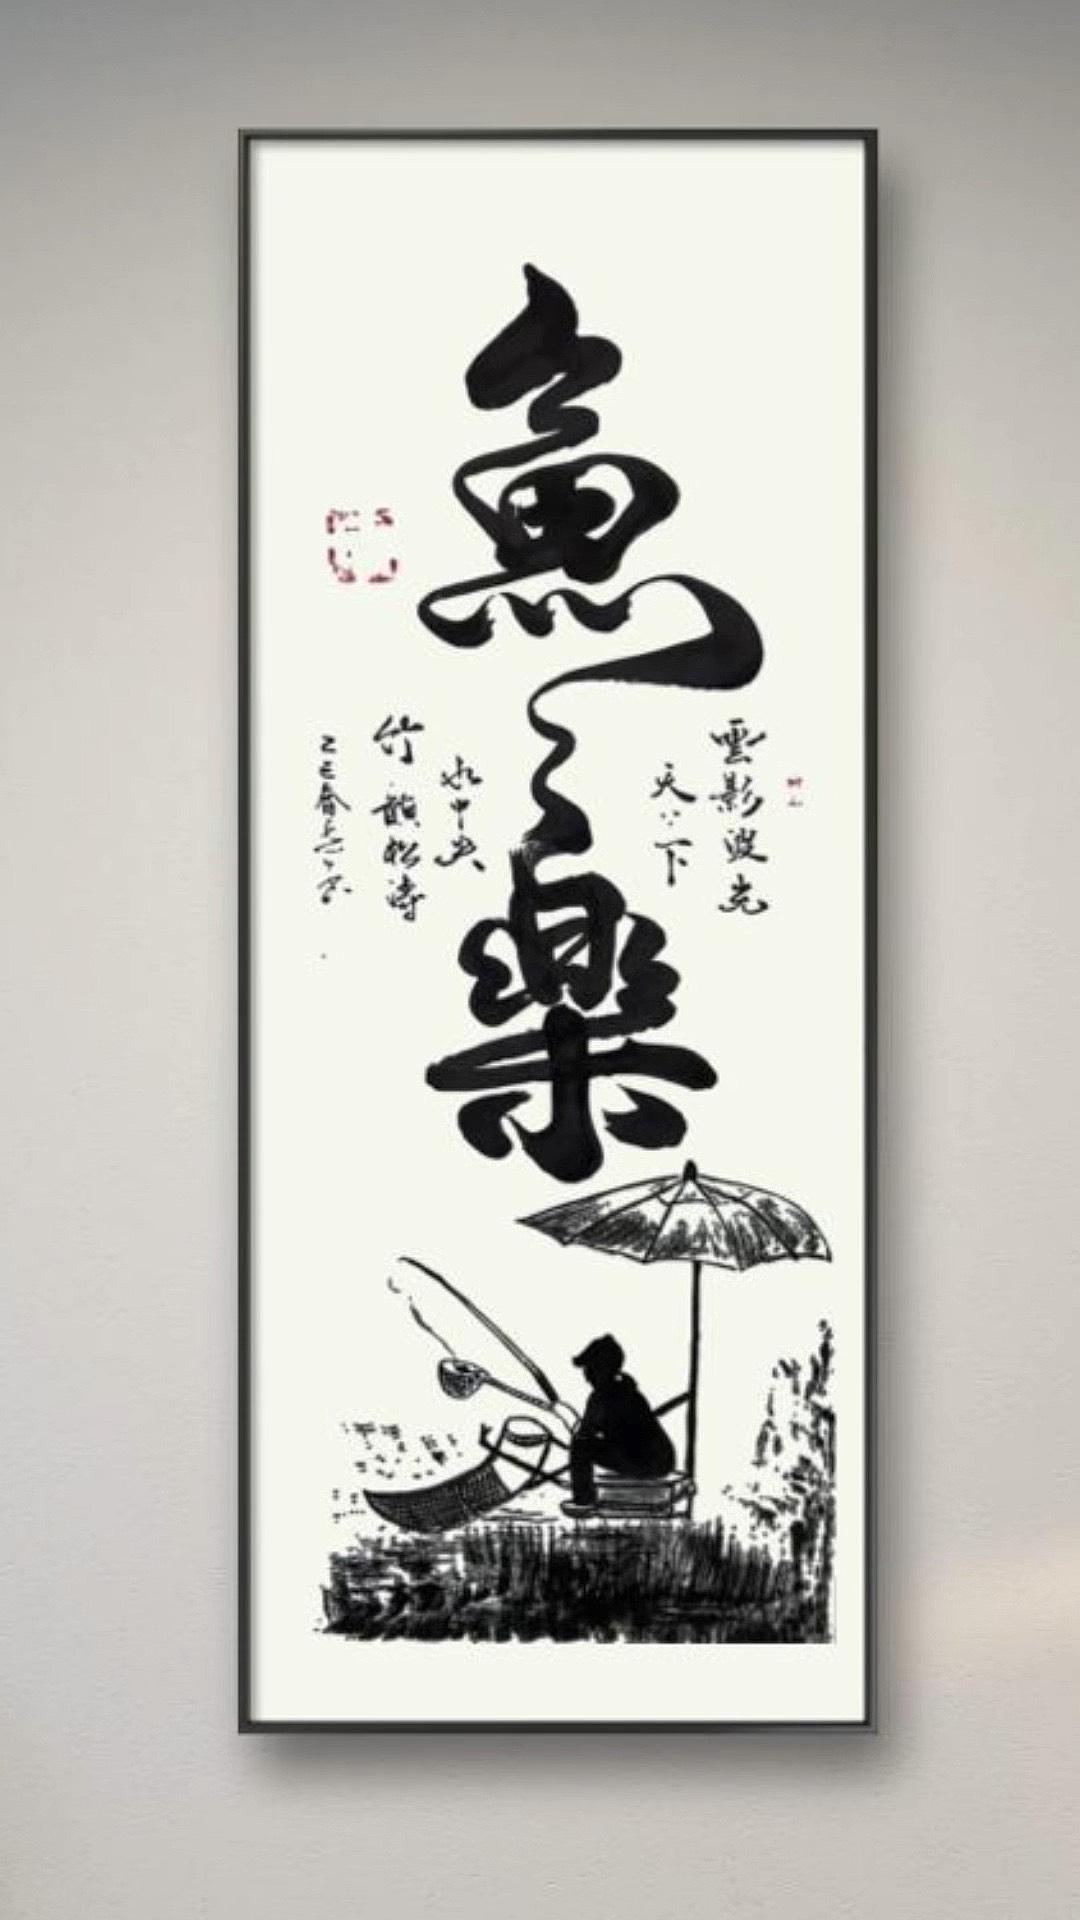 魚樂
雲影波光
天下
水中央
竹韻松濤
乙巳春